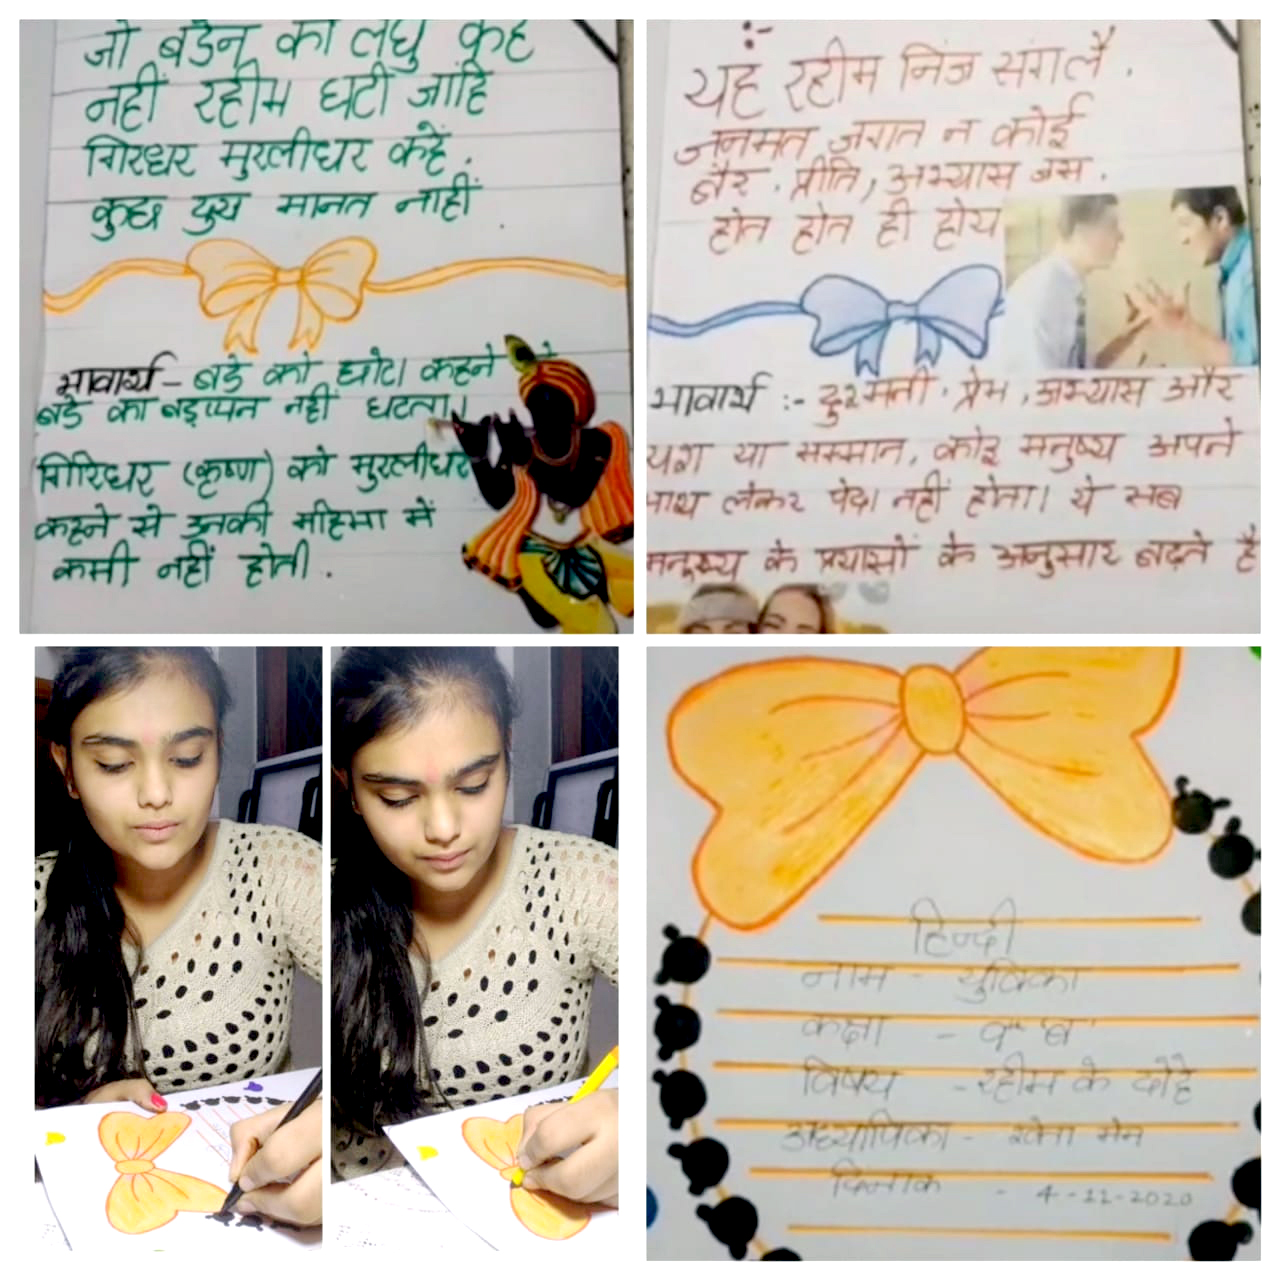 जो बडेन को लघु कहें
नहीं रहीम घटी जांहि
गिरधर मुरलीधर कहें.
कुछ दुख मानत नाहीं.
भावार्थ - बडे को छोटा कहने से
बडे का बड़प्पन नहीं घटता।
गिरिधर (कृष्ण) को मुरलीधर
कहने से उनकी महिमा में
कमी नहीं होती.
:-
यह रहीम निज संगलै.
जनमत जगत न कोई
बैर. प्रीति, अभ्यास जस.
होत होत ही होय
भावार्थ :- दुश्मनी. प्रेम, अभ्यास और
यश या सम्मान, कोइ मनुष्य अपने
साथ लेकर पैदा नहीं होता। ये सब
मनुष्य के प्रयासों के अनुसार बढ़ते है
हिन्दी
नाम - युविका
कक्षा - व" "ब"
विषय - रहीम के दोहे
अध्यापिका - मेम
दिनांक - 4-11-2020